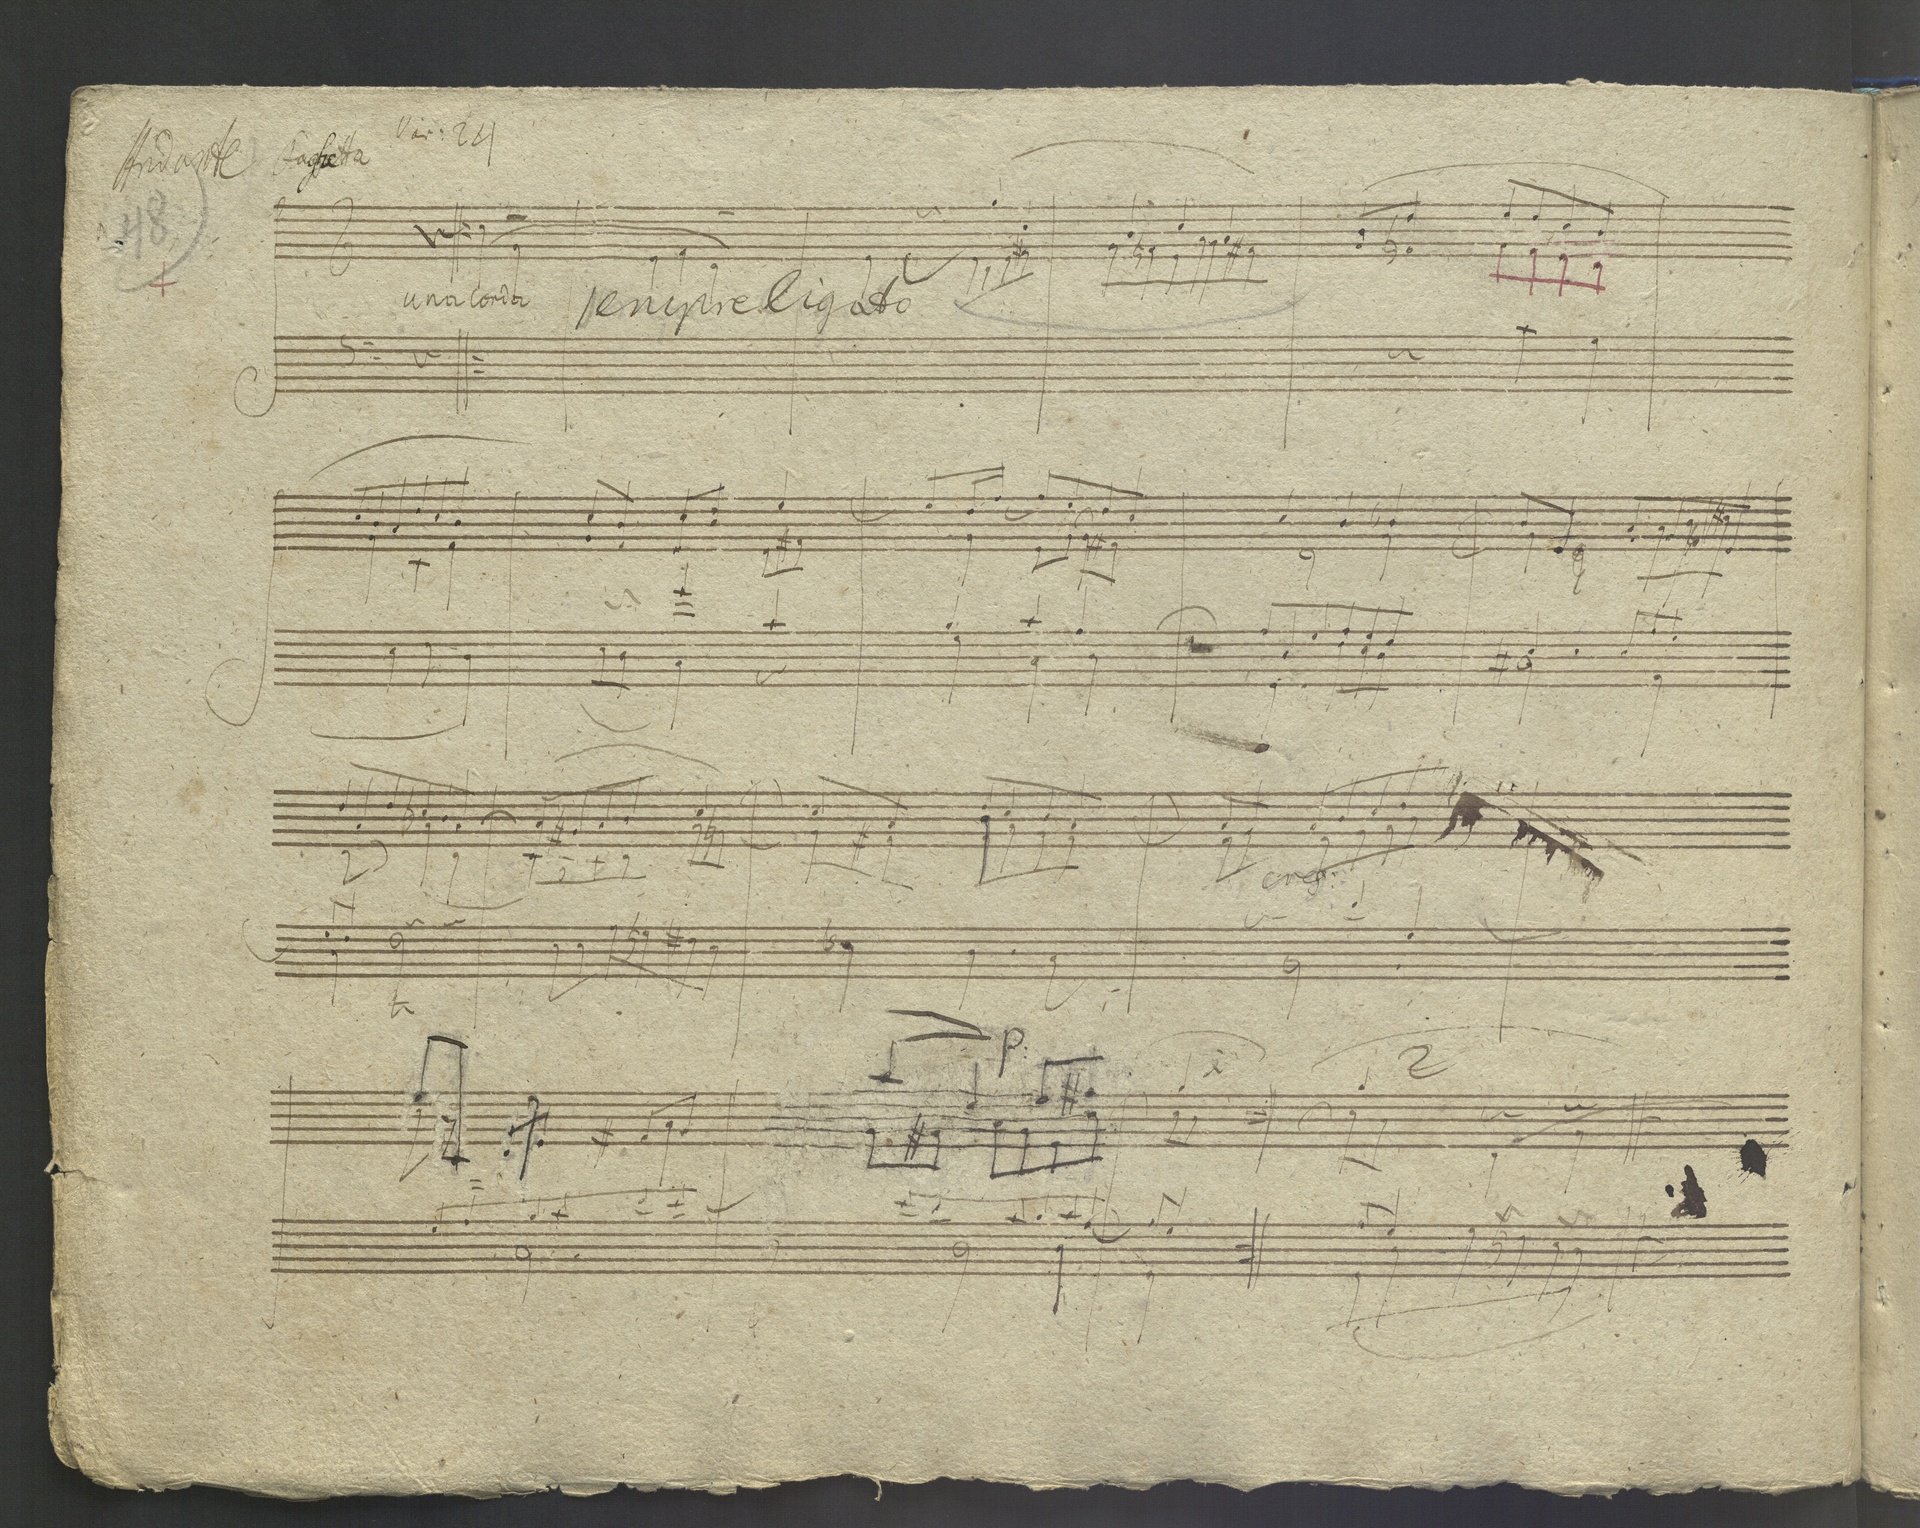 Andante Fughetta Var: 24
48
una corda sempre ligato
cresc:
p:
1 2